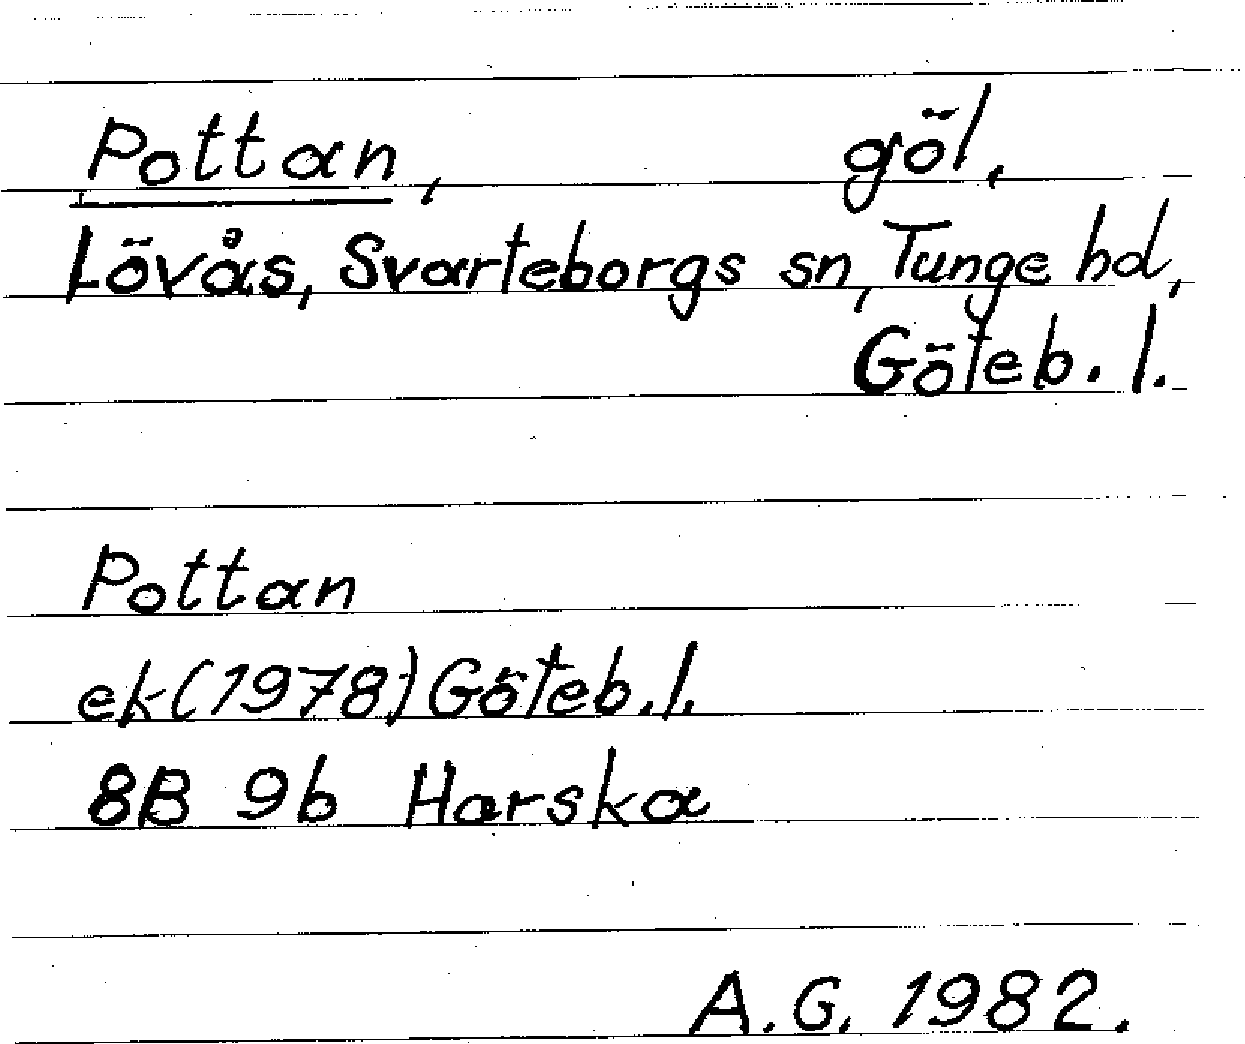 Pottan, göl,
Lövås, Svarteborgs sn, Tunge hd,
Göteb. l.
Pottan
ek (1978) Göteb. l.
8B 9b Harska
A.G. 1982.